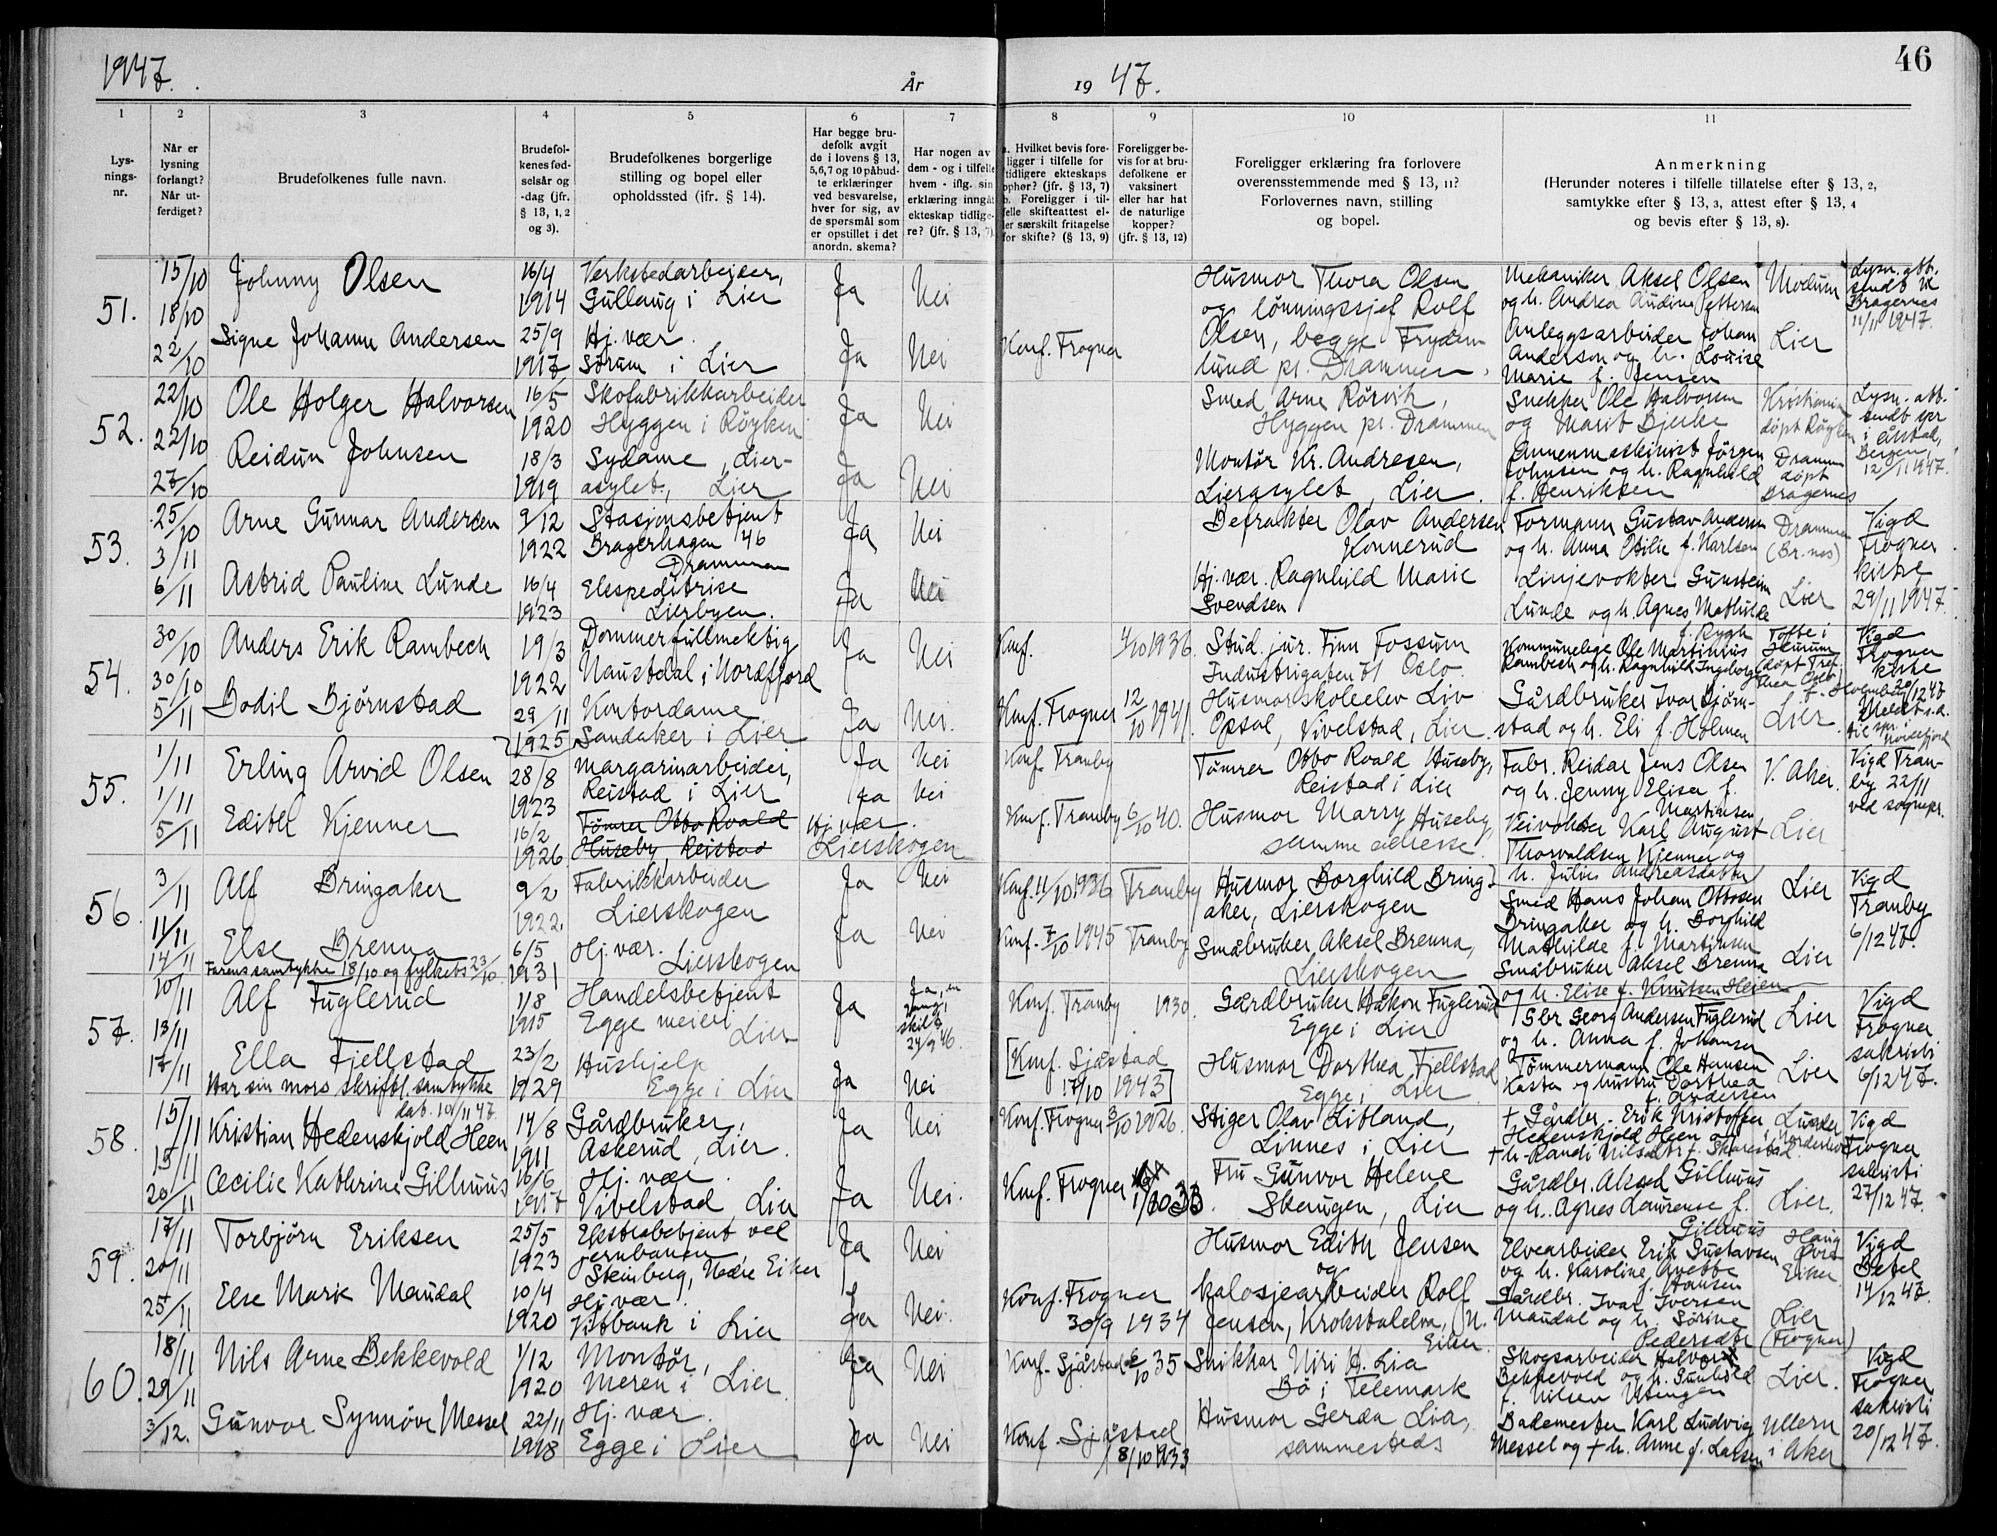 1947.
År
19 47.
46
1
2
3
4
5
6
7
8
9
10
11
Lys-
nings-
nr.
Når er
lysning
forlangt?
Når ut-
ferdiget?
Brudefolkenes fulle navn.
Brudefol-
kenes fød-
selsår og
-dag (jfr.
§ 13, 1, 2
og 3).
Brudefolkenes borgerlige
stilling og bopel eller
opholdssted (jfr. § 14).
Har begge bru-
defolk avgit
de i lovens § 13,
5,6,7 og 10 påbud-
te erklæringer
ved besvarelse,
hver for sig, av
de spørsmål som
er opstillet i det
anordn. skema?
Har nogen av
dem - og i tilfelle
hvem - iflg. sin
erklæring inngåt
ekteskap tidlige-
re? (jfr. § 13, 7)
a. Hvilket bevis fore-
ligger i tilfelle for
tidligere ekteskaps
ophør? (jfr. § 13, 7)
b. Foreligger i til-
felle skifteattest el-
ler særskilt fritagelse
for skifte? (§ 13, 9)
Foreligger be-
vis for at bru-
defolkene er
vaksinert
eller har hat
de naturlige
kopper?
(jfr. § 13, 12)
Foreligger erklæring fra forlovere
overensstemmende med § 13, 11?
Forlovernes navn, stilling
og bopel.
Anmerkning
(Herunder noteres i tilfelle tillatelse efter § 13, 2,
samtykke efter § 13, 3, attest efter § 13, 4
og bevis efter § 13, 8).
51.
15/10
18/10
22/10
Johnny Olsen
16/4
1914
Verkstedarbeider,
Gullaug i Lier
Ja
Nei
Husmor Thora Olsen
og lønningssjef Rolf
Olsen, begge Fryden-
lund pr. Drammen.
Mekaniker Aksel Olsen
og h. Andrea Audine Pettersen
Modum
Lysn. att.
sendt til
Bragernes
11/11 1947.
Signe Johanne Andersen
25/9
1917
Hj. vær.
Sørum i Lier
Ja
Nei
Konf. Frogner
Anleggsarbeider Johan
Anderson og h. Louise
Marie f. Jensen
Lier
52.
22/10
22/10
27/10
Ole Holger Halvorsen
16/5
1920
Skofabrikkarbeider
Hyggen i Røyken
Ja
Nei
Smed Arne Rørvik,
Hyggen pr. Drammen
Snekker Ole Halvorsen
og Marit Bjerke
Kristiania
døpt Røyken
Lysn. att.
sendt spr
i Årstad,
Bergen,
12/11 1947.
Reidun Johnsen
18/3
1919
Sydame, Lier-
asylet, Lier
Ja
Nei
Montør Kr. Andresen,
Lierasylet, Lier.
Johnsen og h. Ragnhild
f. Henriksen
Drammen
døpt
Bragernes
53.
25/10
3/11
6/11
Arne Gunnar Andersen
9/12
1922
Stasjonsbetjent
Bragerhagen 46
Drammen
Ja
Nei
Befrakter Olav Andersen
Konnerud
Formann Gustav Andersen
og h. Anna Otilie f. Karlsen
Drammen
(Br.nes)
Vigd
Frogner
kirke
29/11 1947.
Astrid Pauline Lunde
16/4
1923
Ekspeditrise
Lierbyen.
Ja
Nei
Hj. vær. Ragnhild Marie
Svendsen
Linjevokter Gunstein
Lunde og h. Agnes Mathilde
f. Rygh
Lier
54.
30/10
30/10
5/11
Anders Erik Rambech
19/3
1922
Dommerfullmektig
Naustdal i Nordfjord
Ja
Nei
Konf.
4/10 1936.
Stud. jur. Finn Fossum
Industrigaten 51 Oslo.
Kommunelege Ole Martinius
Rambech og h. Ragnhild Ingeborg
f. Holmboe
Tofte i
Hurum
Vigd
Frogner
kirke
20/12 47
Bodil Bjørnstad
29/11
1925
Kontordame
Sandaker i Lier
Ja
Nei.
Konf. Frogner
12/10 1941.
Husmorskoleelev Liv
Opsal, Vivelstad, Lier.
Gårdbruker Ivar Bjørn-
stad og h. Eli f. Holmen
Lier.
55.
1/11
1/11
5/11
Erling Arvid Olsen
28/8
1923
Margarinarbeider,
Reistad i Lier
Ja
Nei
Ja
Nei
Konf. Tranby
Tømrer Otto Roald Huseby,
Reistad i Lier
Fabr. Reidar Jens Olsen
og h. Jenny Elisa f.
Martinsen
V. Aker.
Vigd Tran-
by 22/11
ved sognepr.
Edith Kjenner
16/2
1926
Tømrer Otto Roald
Huseby, Reistad
Hj. vær.
Lierskogen
Konf. Tranby
6/10 40.
Husmor Marry Huseby,
samme adresse.
Veivokter Karl August
Thorvaldsen Kjenner og
h. Julie Andreasdatter
Lier
56.
3/11
11/11
14/11
Alf Bringaker
9/2
1922.
Fabrikkarbeider
Lierskogen
Ja
Nei
Konf. 11/10 1936
Tranby
Husmor Borghild Bring-
aker, Lierskogen
Smed Hans Johan Ottosen
Bringaker og h. Borghild
Mathilde f. Martinsen
Lier
Vigd
Tranby
6/12 47.
Else Brenna
Farens samtykke 18/10 og fylkets 23/10
6/5
1931
Hj. vær.
Lierskogen
Ja
Nei
Konf. 7/10 1945
Tranby
Småbruker Aksel Brenna,
Lierskogen
Småbruker Aksel Brenna
og h. Elise f. Knutsen Heien
Lier
57.
10/11
13/11
17/11
Alf Fuglerud
1/8
1915
Handelsbetjent
Egge meieri
Lier
Ja
Ja, en
gang,
skilt
24/9 46.
Konf. Tranby
1930.
Gårdbruker Håkon Fuglerud
Egge i Lier
Gbr Georg Andersen Fuglerud
og h. Anna f. Johansen
Lier
Vigd
Frogner
sakristi
6/12 47.
Ella Fjellstad
Har sin mors skriftl. samtykke
dat. 10/11 47.
23/2
1929
Hushjelp
Egge i Lier
Ja
Nei
[Konf. Sjåstad
17/10 1943]
Husmor Dorthea Fjellstad
Egge, Lier
Tømmermann Ole Hansen
Kasta og hustru Dorthea
f. Andersen
Lier
58.
15/11
15/11
20/11
Kristian Hedenskjold Heen
14/8
1911
Gårdbruker,
Askerud, Lier.
Ja
Nei
Konf. Frogner
3/10 1926.
Stiger Olav Litland,
Linnes i Lier
† Gårdbr. Erik Kristoffer
Hedenskjold Heen og
† h. Randi Nilsdtr f. Skarstad
Lunder
i Norderhov
Vigd
Frogner
sakristi
27/12 47.
Cecilie Kathrine Gilhuus
16/6
1917
Hj. vær.
Vivelstad, Lier
Ja
Nei.
Konf. Frogner
1/10 33.
Fru Gunvor Helene
Skaugen, Lier
Gårdbr. Aksel Gilhuus
og h. Agnes Laurense f.
Gilhuus
Lier.
59.
17/11
20/11
25/11
Torbjørn Eriksen
25/5
1923
Ekstrabetjent ved
jernbanen,
Steinberg, Nedre Eiker
Ja
Nei
Husmor Edith Jensen
og
Elvearbeider Erik Gustavsen
og h. Karoline Anette
f. Hansen
Haug
Øvre
Eiker.
Vigd
Betel
14/12 47.
Else Marie Maudal
10/4
1920
Hj. vær.
Vitbank i
Lier
Ja
Nei.
Konf. Frogner
30/9 1934
kalosjearbeider Rolf
Jensen, Krokstadelva, (N.
Eiker.
Gårdbr. Ivar Iversen
Maudal og h. Sørine
Pedersdtr
Lier
(Frogner)
60.
18/11
29/11
3/12.
Nils Arne Bekkevold
1/12
1920
Montør,
Meren i Lier.
Ja
Nei
Konf. Sjåstad
6/10 35
Snikkar Niri H. Lia
Bø i Telemark
Skogsarbeider Halvor
Bekkevold og h. Gunhild
f. Nilsen Utengen
Lier.
Vigd
Frogner
sakristi
20/12 47.
Gunvor Synnøve Messel
22/11
1918
Hj. vær.
Egge i Lier
Ja
Nei
Konf. Sjåstad
8/10 1933
Husmor Gerda Lia,
sammesteds
Bademester Karl Ludvig
Messel og † h. Anne f. Larsen
Ullern
i Aker